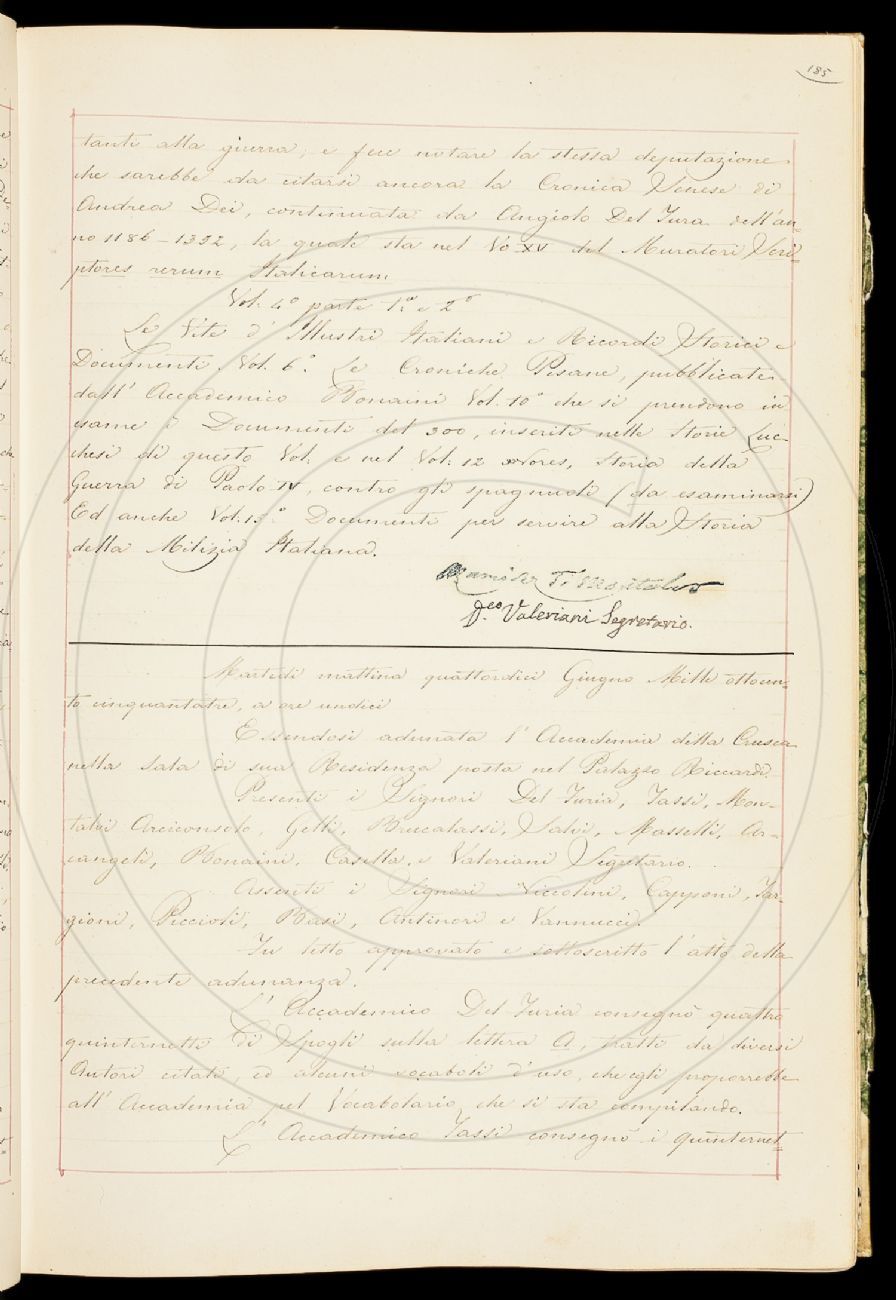 185
tanti alla guerra, e fece notare la stessa deputazione
che sarebbe da citarsi ancora la Cronica Senese di
Andrea Dei, continuata da Angiolo Del Tura dall'an=
no 1186 - 1352, la quale sta nel Vo XV del Muratori Scri=
ptores rerum Italicarum
Vol. 4º parte 1ª e 2ª
Le Vite d'Illustri Italiani e Ricordi Storici e
Documenti Vol. 6º. Le Croniche Pisane, pubblicate
dall'Accademico Bonaini Vol. 10º che si prendono in
esame i Documenti del 300, inseriti nelle Storie Luc=
chesi di questo Vol. e nel Vol: 12 Storia della
Guerra di Paolo IV, contro gli spagnuoli (da esaminarsi)
Ed anche Vol: 15º. Documenti per servire alla Storia
della Milizia Italiana.
Montalvo
Valeriani Segretario.
Martedì mattina quattordici Giugno Mille ottocen=
to cinquantatre, a ore undici
Essendosi adunata l'Accademia della Crusca
nella Sala di sua Residenza posta nel Palazzo Riccardi
Presenti i Signori Del Furia, Tassi, Mon=
talvi Arciconsolo, Gelli, Brucalassi, Salvi, Masselli, Ar=
cangeli, Bonaini, Casella, e Valeriani Segretario.
Assenti i Signori Niccolini, Capponi, Tar=
gioni, Piccioli, Basi, Antinori e Vannucci.
Fu letto approvato e sottoscritto l'atto della
precedente adunanza.
L'Accademico Del Furia consegnò quattro
quinternetti di Spogli sulla lettera A, tratti da diversi
Autori citati, ed alcuni vocaboli d'uso, che egli proporrebbe
all'Accademia pel Vocabolario che si sta compilando.
L'Accademico Tassi consegnò i quinternet=